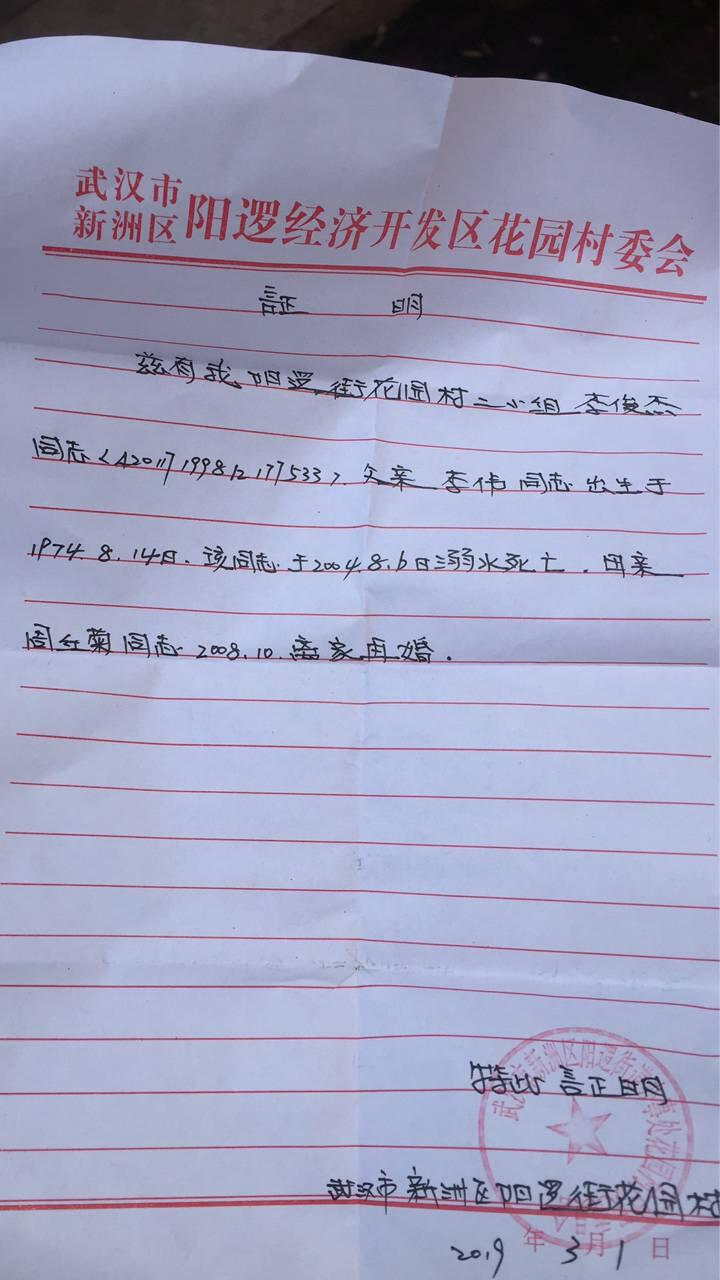 武汉市
新洲区 阳逻经济开发区花园村委会
証 明
兹有我阳逻街花园村二小组李俊杰
同志<420117199812175533>.父亲李伟同志出生于
1974.8.14日.该同志于2004.8.6日溺水死亡.母亲
周红菊同志.2008.10.离家再婚.
特此証明
武汉市新洲区阳逻街花园村
2019年3月1日
武汉市新洲区阳逻街